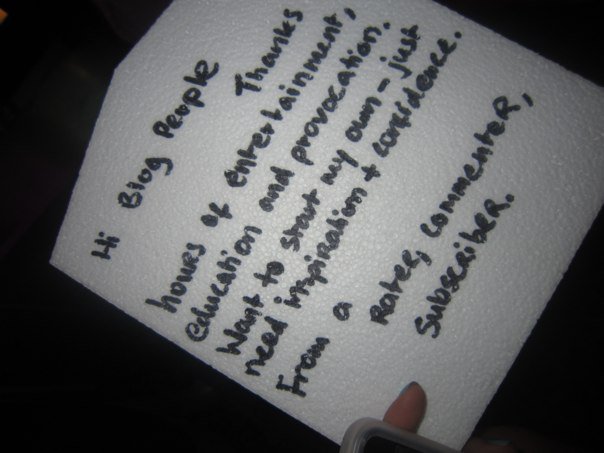 Hi Blog People Thanks
hours of entertainment,
education and provocation.
Want to start my own - just
need inspiration + confidence.
From a
Rater, commenter,
Subscriber.